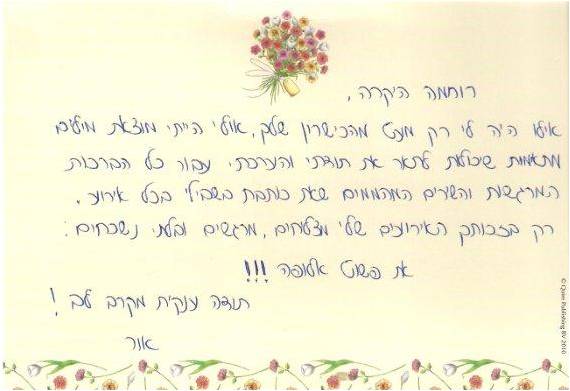 רוחמה היקרה,
אילו היה לי רק מעט מהכישרון שלך, אולי הייתי מוצאת מילים
מתאימות שיכולות לתאר את תודתי והערכתי. עבור כל הברכות
המרגשות והשירים המהממים שאת כותבת בשבילי בכל אירוע.
רק בזכותך האירועים שלי מצליחים, מרגשים ובלתי נשכחים:
את פשוט אלופה !!!
תודה ענקית מקרב לב!
אור
© Quire Publishing BV 2010